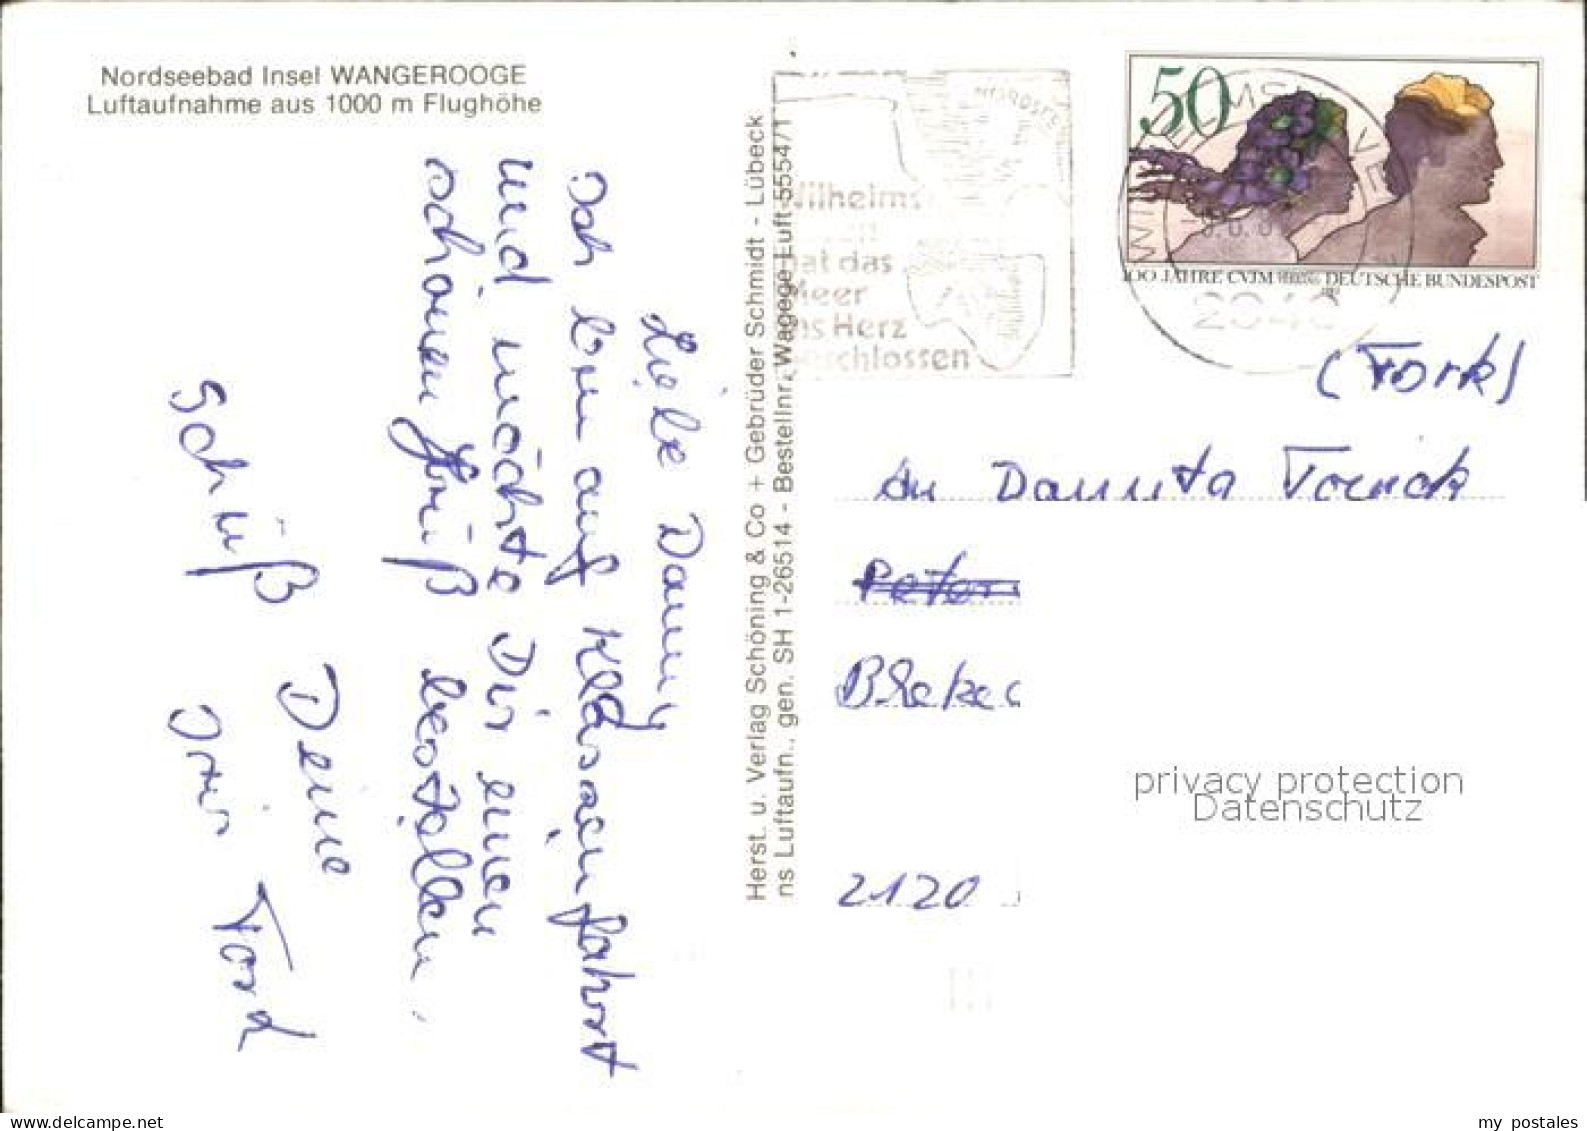 Nordseebad Insel WANGEROOGE
Luftaufnahme aus 1000 m Flughöhe
Liebe Danny
Ich bin auf Klassenfahrt
und möchte Dir einen
schönen Gruß bestellen.
Schüß Deine
Iris Ford
Herst. u. Verlag Schöning & Co + Gebrüder Schmidt - Lübeck
ns Luftaufn., gen. SH 1-26514 - Bestellnr. Wagege Luft 5554/1
NORDSEE
Wilhelms
hat das
Meer
ns Herz
schlossen
50
100 JAHRE CVJM DEUTSCHE BUNDESPOST
An Danuta
Peter
2120
privacy protection
Datenschutz
delcampe.net
my_postales